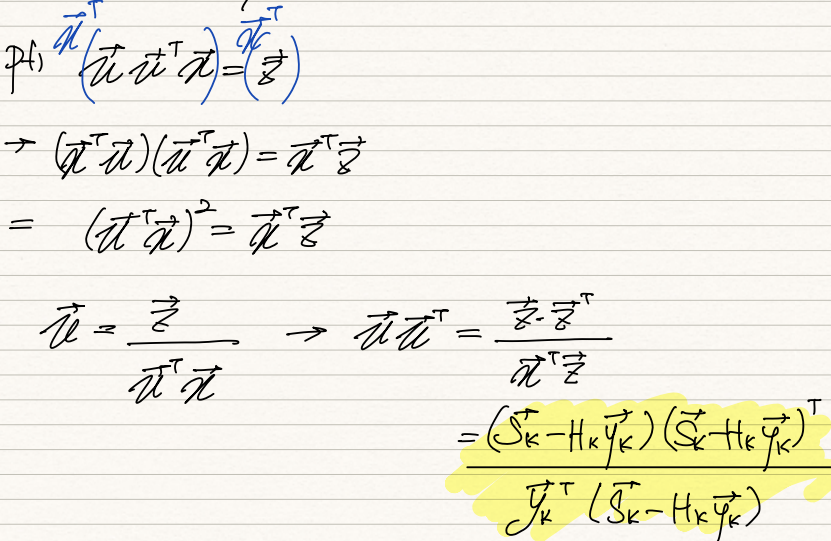 pf) x⃗ᵀ(u⃗ u⃗ᵀ x⃗) = x⃗ᵀ(z⃗)
→ (x⃗ᵀu⃗)(u⃗ᵀx⃗) = x⃗ᵀz⃗
= (u⃗ᵀx⃗)² = x⃗ᵀz⃗
u⃗ = z⃗ / u⃗ᵀx⃗ → u⃗u⃗ᵀ = z⃗·z⃗ᵀ / x⃗ᵀz⃗
= (s⃗ₖ − Hₖy⃗ₖ)(s⃗ₖ − Hₖy⃗ₖ)ᵀ / y⃗ₖᵀ(s⃗ₖ − Hₖy⃗ₖ)